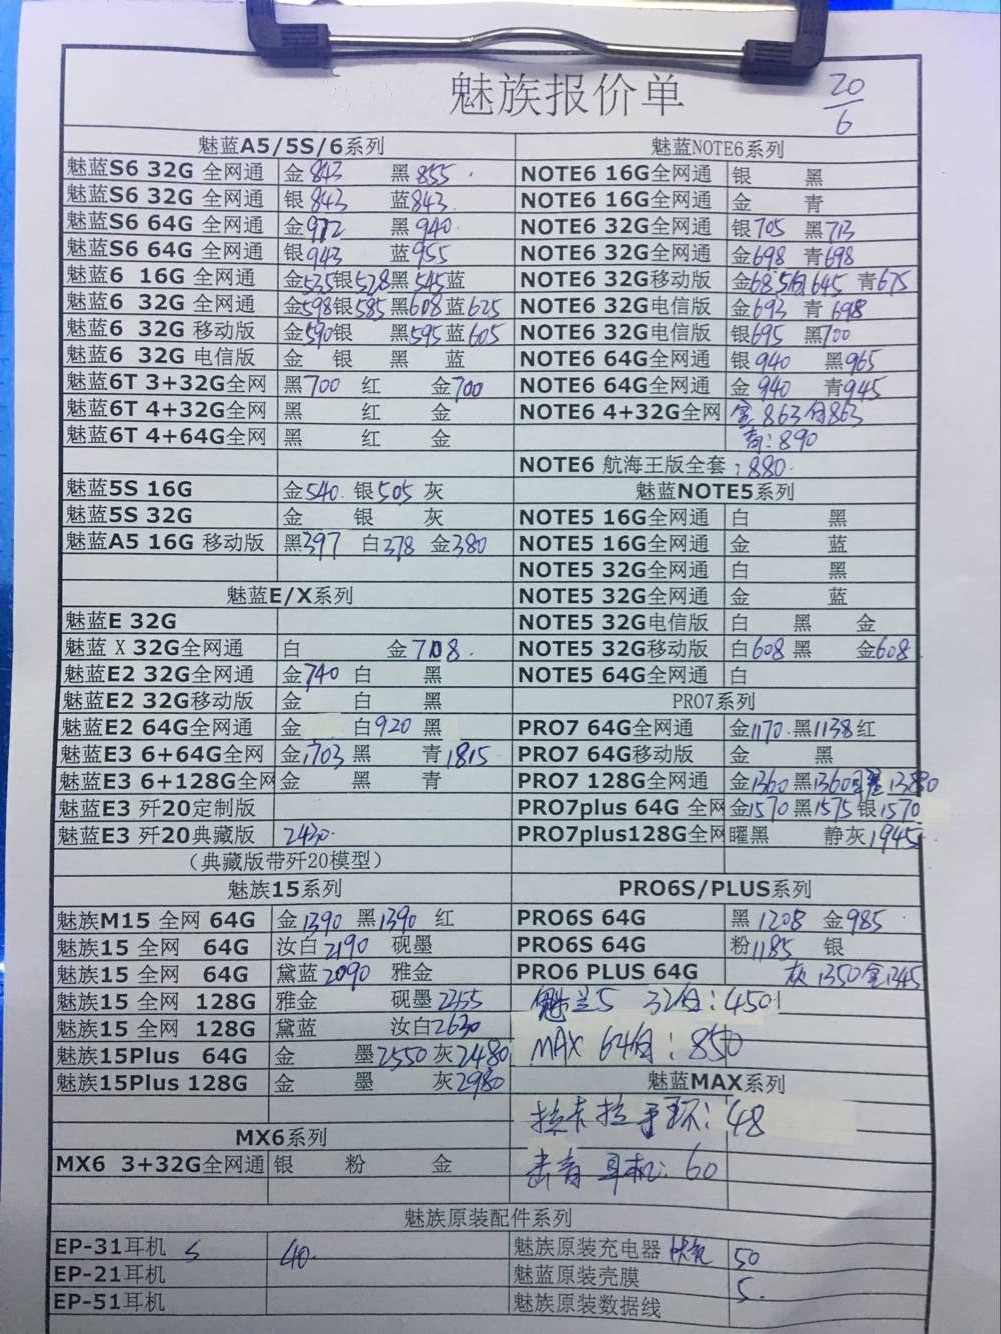 魅族报价单
20/6
魅蓝A5/5S/6系列
魅蓝S6 32G 全网通 金843 黑855
魅蓝S6 32G 全网通 银843 蓝843
魅蓝S6 64G 全网通 金972 黑940
魅蓝S6 64G 全网通 银943 蓝955
魅蓝6 16G 全网通 金535银528黑545蓝
魅蓝6 32G 全网通 金598银585黑608蓝625
魅蓝6 32G 移动版 金590银 黑595蓝605
魅蓝6 32G 电信版 金 银 黑 蓝
魅蓝6T 3+32G全网 黑700 红 金700
魅蓝6T 4+32G全网 黑 红 金
魅蓝6T 4+64G全网 黑 红 金
魅蓝5S 16G 金540 银505 灰
魅蓝5S 32G 金 银 灰
魅蓝A5 16G 移动版 黑397 白378 金380
魅蓝E/X系列
魅蓝E 32G
魅蓝 X 32G全网通 白 金708
魅蓝E2 32G全网通 金740 白 黑
魅蓝E2 32G移动版 金 白 黑
魅蓝E2 64G全网通 金 白920 黑
魅蓝E3 6+64G全网 金1703 黑 青1815
魅蓝E3 6+128G全网 金 黑 青
魅蓝E3 歼20定制版
魅蓝E3 歼20典藏版 2430
（典藏版带歼20模型）
魅族15系列
魅族M15 全网 64G 金1390 黑1390 红
魅族15 全网 64G 汝白2190 砚墨
魅族15 全网 64G 黛蓝2090 雅金
魅族15 全网 128G 雅金 砚墨2255
魅族15 全网 128G 黛蓝 汝白2630
魅族15Plus 64G 金 墨2550 灰2480
魅族15Plus 128G 金 墨 灰2980
MX6系列
MX6 3+32G全网通 银 粉 金
魅蓝NOTE6系列
NOTE6 16G全网通 银 黑
NOTE6 16G全网通 金 青
NOTE6 32G全网通 银705 黑713
NOTE6 32G全网通 金698 青698
NOTE6 32G移动版 金685 645 青675
NOTE6 32G电信版 金693 青698
NOTE6 32G电信版 银695 黑700
NOTE6 64G全网通 银940 黑965
NOTE6 64G全网通 金940 青945
NOTE6 4+32G全网 金863 白863
青:890
NOTE6 航海王版全套:880
魅蓝NOTE5系列
NOTE5 16G全网通 白 黑
NOTE5 16G全网通 金 蓝
NOTE5 32G全网通 白 黑
NOTE5 32G全网通 金 蓝
NOTE5 32G电信版 白 黑 金
NOTE5 32G移动版 白608 黑 金608
NOTE5 64G全网通 白
PRO7系列
PRO7 64G全网通 金1170 黑1138红
PRO7 64G移动版 金 黑
PRO7 128G全网通 金1360黑1360 1380
PRO7plus 64G 全网 金1570黑1575银1570
PRO7plus128G全网 曜黑 静灰1945
PRO6S/PLUS系列
PRO6S 64G 黑1208 金985
PRO6S 64G 粉1185 银
PRO6 PLUS 64G 灰1350金1345
魅兰5 32白:450
MAX 64白:850
魅蓝MAX系列
拉卡拉手环:48
击音耳机:60
魅族原装配件系列
EP-31耳机 40
EP-21耳机
EP-51耳机
魅族原装充电器 50
魅蓝原装壳膜 5
魅族原装数据线